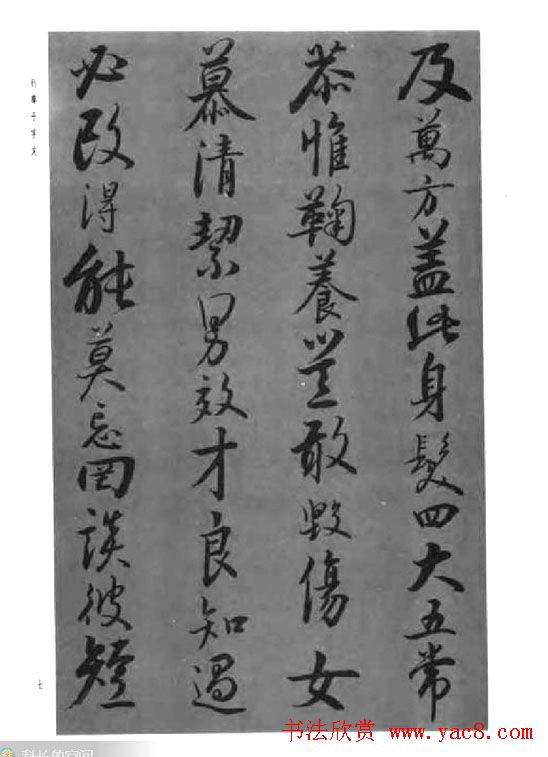 及萬方蓋此身髮四大五常
恭惟鞠養豈敢毀傷女
慕清潔男效才良知過
必改得能莫忘罔談彼短
行書千字文
七
书法欣赏 www.yac8.com
科长的空间